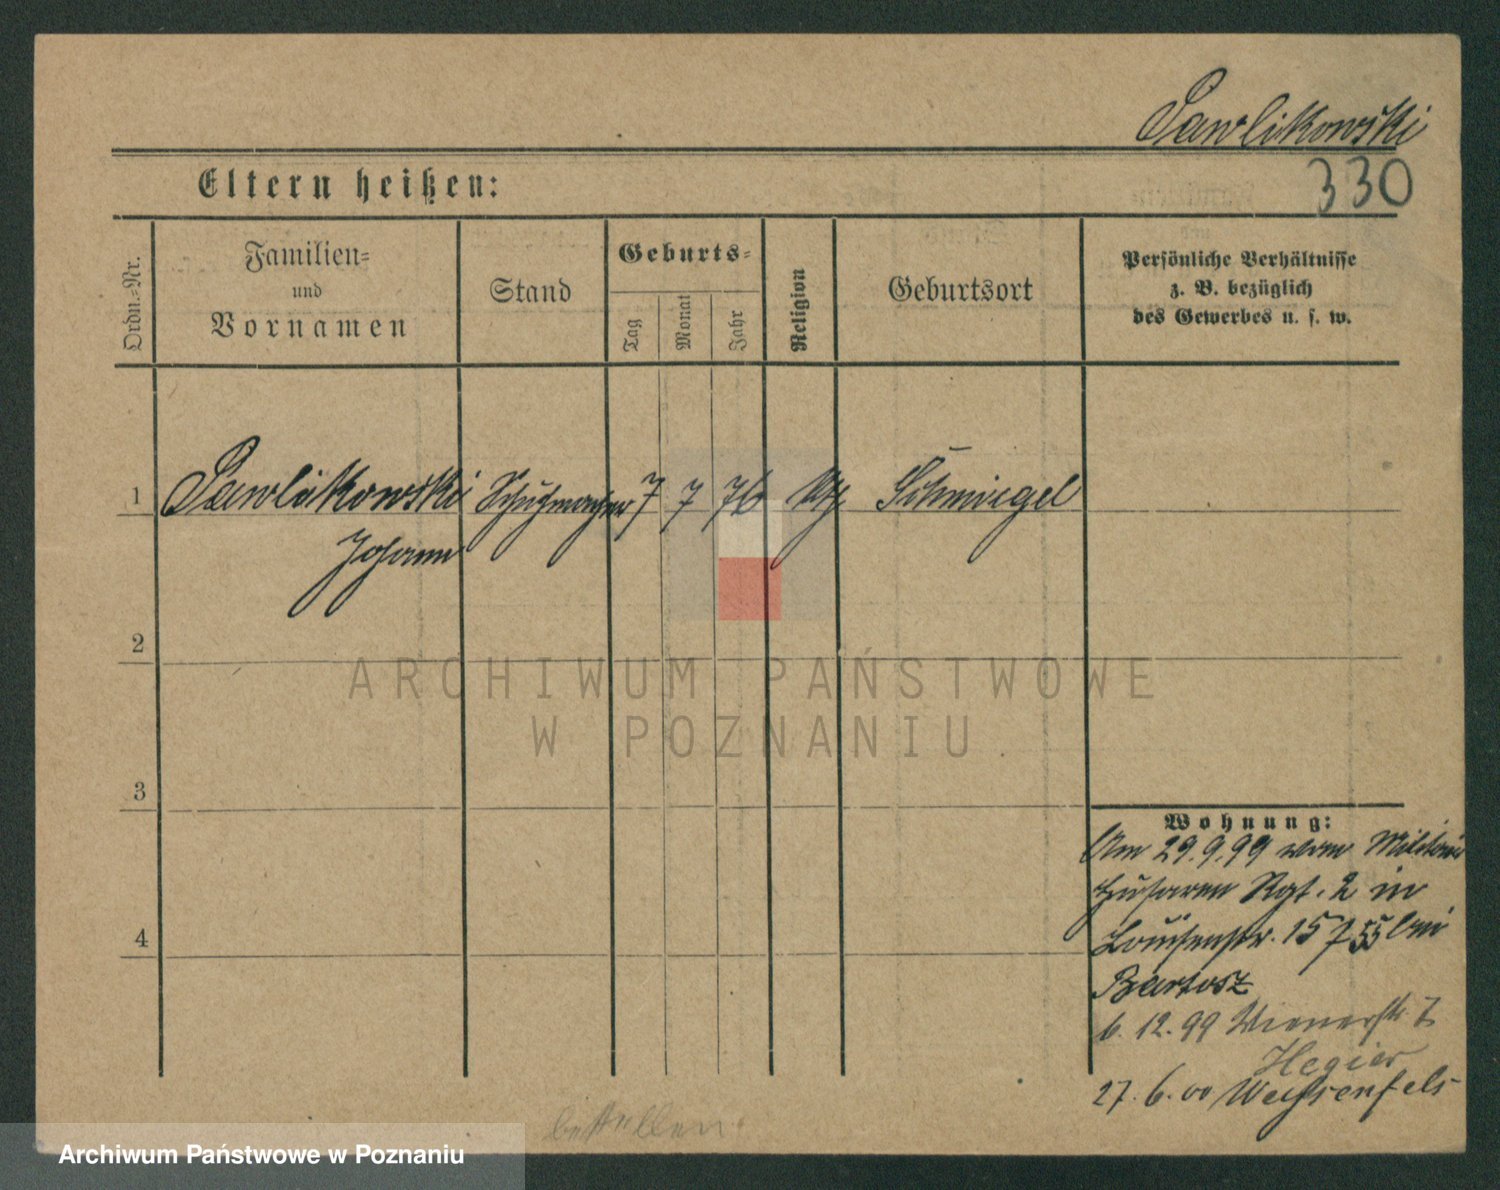 Pawlikowski
330
Eltern heißen:
Ordn.-Nr.
Familien-
und
Vornamen
Stand
Geburts-
Tag
Monat
Jahr
Religion
Geburtsort
Persönliche Verhältnisse
z. B. bezüglich
des Gewerbes u. s. w.
1
Pawlikowski Schuhmacher 7 7 76 Kth Schmiegel
Johann
2
ARCHIWUM PAŃSTWOWE
W POZNANIU
3
Wohnung:
Am 29.9.99 vom Militär
Husaren Rgt. 2 in
4
Louisenstr. 15 bei
Bartosz
6. 12. 99 Wienerstr. 7
Hegier
27. 6. 00 Weissenfels
bestellen
Archiwum Państwowe w Poznaniu